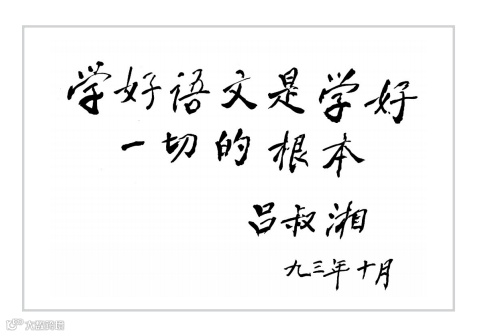 学好语文是学好
一切的根本
吕叔湘
九三年十月